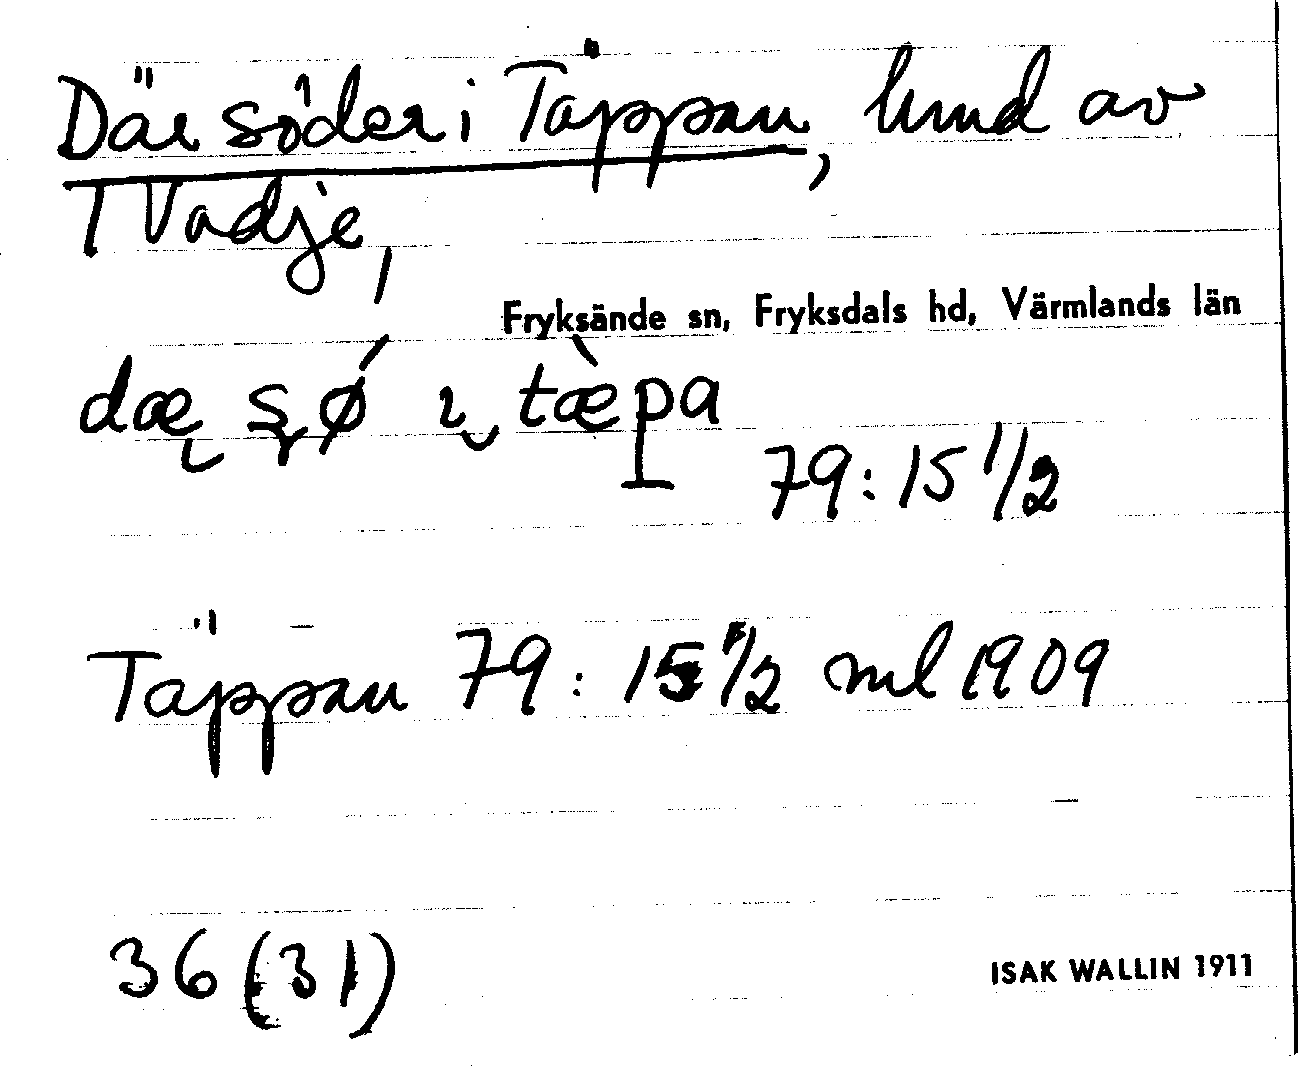 Där söder i Täppan, lund av
1 Vadje,
Fryksände sn, Fryksdals hd, Värmlands län
dæ sø ı tæpa
79:15 1/2
Täppan 79:15 1/2 ml 1909
36 (31)
ISAK WALLIN 1911